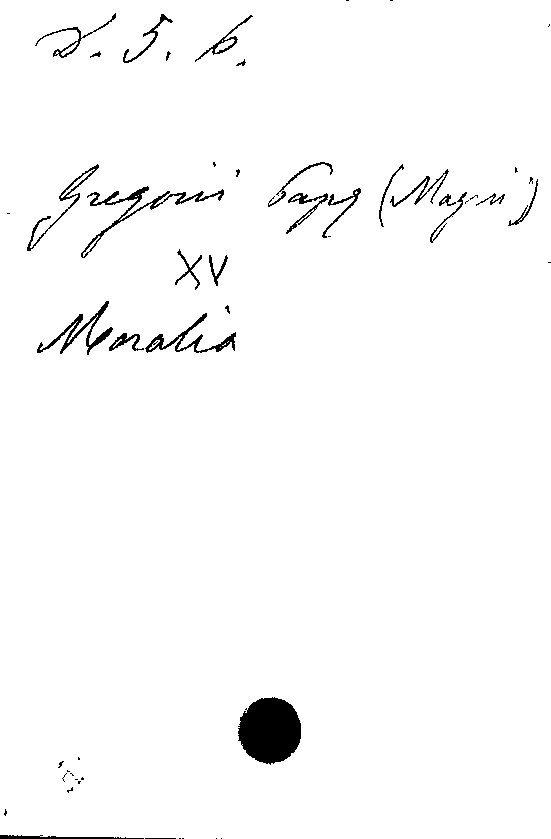 D. 5. 6.
Gregorii Papę (Magni)
XV
Moralia